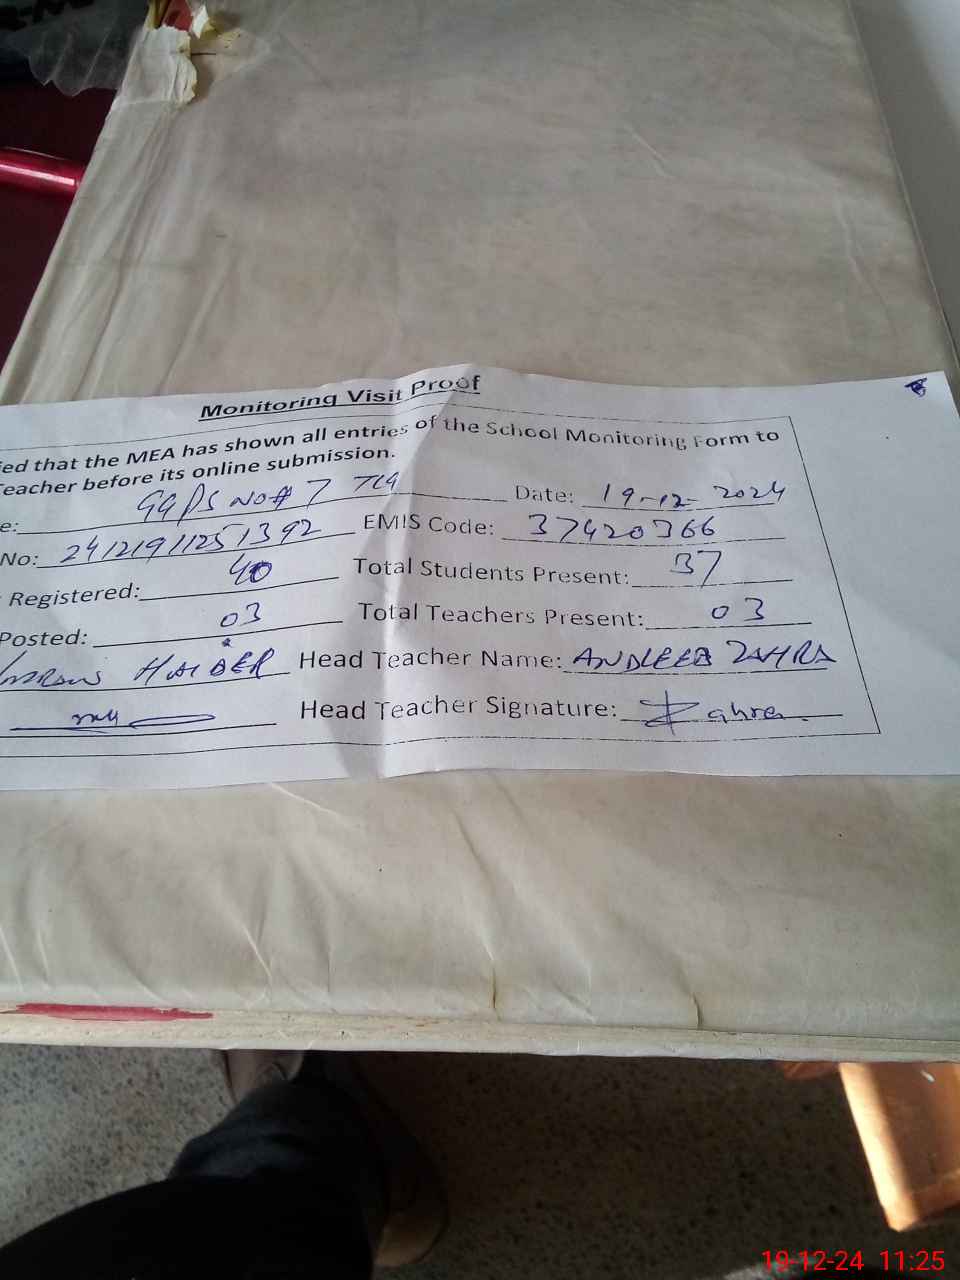 Monitoring Visit Proof
ied that the MEA has shown all entries of the School Monitoring Form to
Teacher before its online submission.
e: GGPS NO# 7 TCG Date: 19-12-2024
No: 24121911251392 EMIS Code: 37420366
Registered: 40 Total Students Present: 37
Posted: 03 Total Teachers Present: 03
HAIDER Head Teacher Name: ANDLEEB ZAHRA
Head Teacher Signature: Zahra
19-12-24 11:25